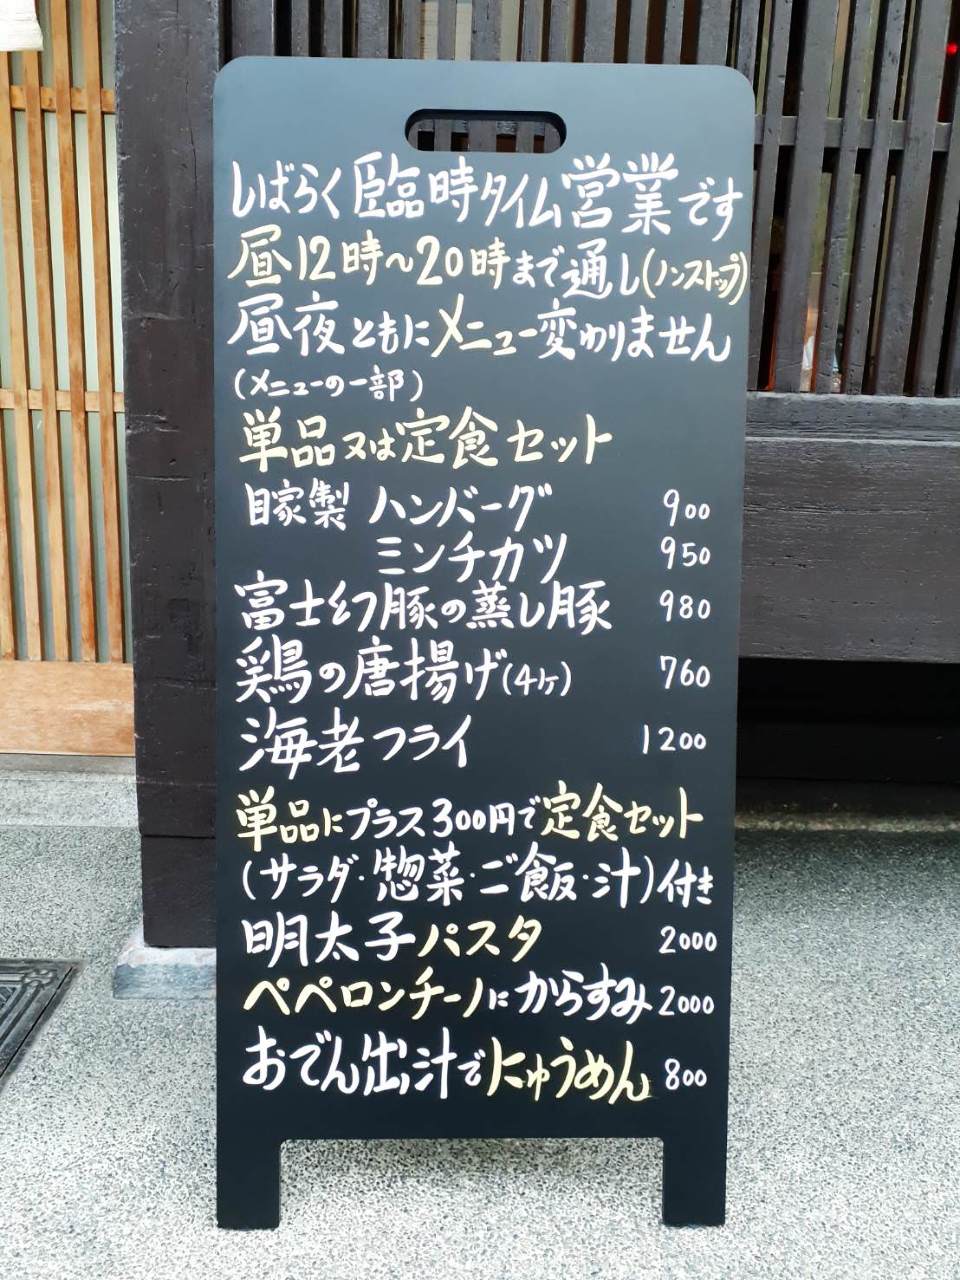 しばらく臨時タイム営業です
昼12時～20時まで通し(ノンストップ)
昼夜ともにメニュー変わりません
(メニューの一部)
単品又は定食セット
自家製 ハンバーグ 900
ミンチカツ 950
富士幻豚の蒸し豚 980
鶏の唐揚げ(4ケ) 760
海老フライ 1200
単品にプラス300円で定食セット
(サラダ・惣菜・ご飯・汁)付き
明太子パスタ 2000
ペペロンチーノにからすみ 2000
おでん出汁でにゅうめん 800